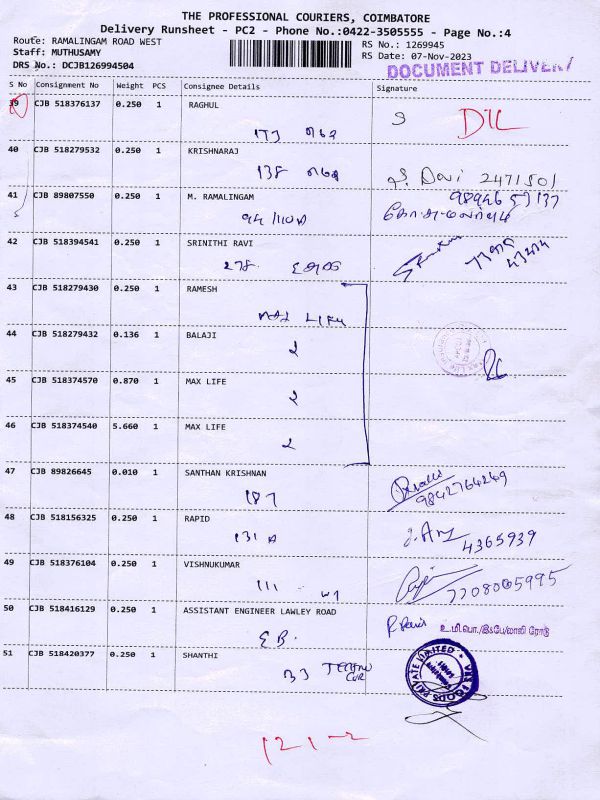 THE PROFESSIONAL COURIERS, COIMBATORE
Delivery Runsheet - PC2 - Phone No.:0422-3505555 - Page No.:4
Route: RAMALINGAM ROAD WEST
Staff: MUTHUSAMY
DRS No.: DCJB126994504
RS No.: 1269945
RS Date: 07-Nov-2023
DOCUMENT DELIVERY
S No Consignment No Weight PCS Consignee Details Signature
39 CJB 518376137 0.250 1 RAGHUL
173
DIL
40 CJB 518279532 0.250 1 KRISHNARAJ
138
Devi 2471501
41 CJB 89807550 0.250 1 M. RAMALINGAM
94/110A
42 CJB 518394541 0.250 1 SRINITHI RAVI
278
43 CJB 518279430 0.250 1 RAMESH
MAX LIFE
44 CJB 518279432 0.136 1 BALAJI
45 CJB 518374570 0.870 1 MAX LIFE
46 CJB 518374540 5.660 1 MAX LIFE
47 CJB 89826645 0.010 1 SANTHAN KRISHNAN
187
9842764249
48 CJB 518156325 0.250 1 RAPID
131 A
4365939
49 CJB 518376104 0.250 1 VISHNUKUMAR
111
7708005995
50 CJB 518416129 0.250 1 ASSISTANT ENGINEER LAWLEY ROAD
E.B.
உ.மி.பொ./இ&பே/லாலி ரோடு
51 CJB 518420377 0.250 1 SHANTHI
FOODS PRIVATE LIMITED
121-2